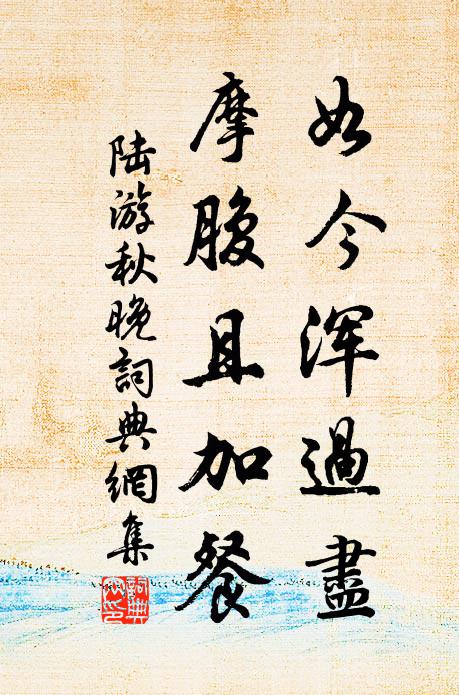 如今浑過盡
摩腹且加餐
陆游秋晚詞典網集